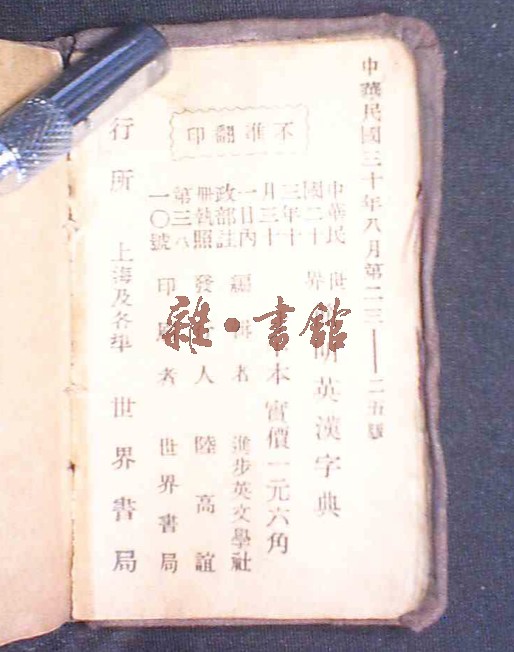 中華民國三十年八月第二三——二五版
不准翻印
中華民
國二十
三年十
月三十
一日內
政部註
冊執照
第三八
一〇號
世界 明英漢字典
本實價一元六角
編輯者 進步英文學社
發行人 陸高誼
印 者 世界書局
行所 上海及各埠 世界書局
雜·書館